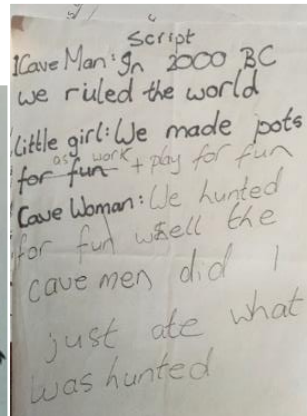 Script
1Cave Man: In 2000 BC
we ruled the world
Little girl: We made pots
as work
for fun + play for fun
Cave Woman: We hunted
for fun well the
cavemen did I
just ate what
was hunted